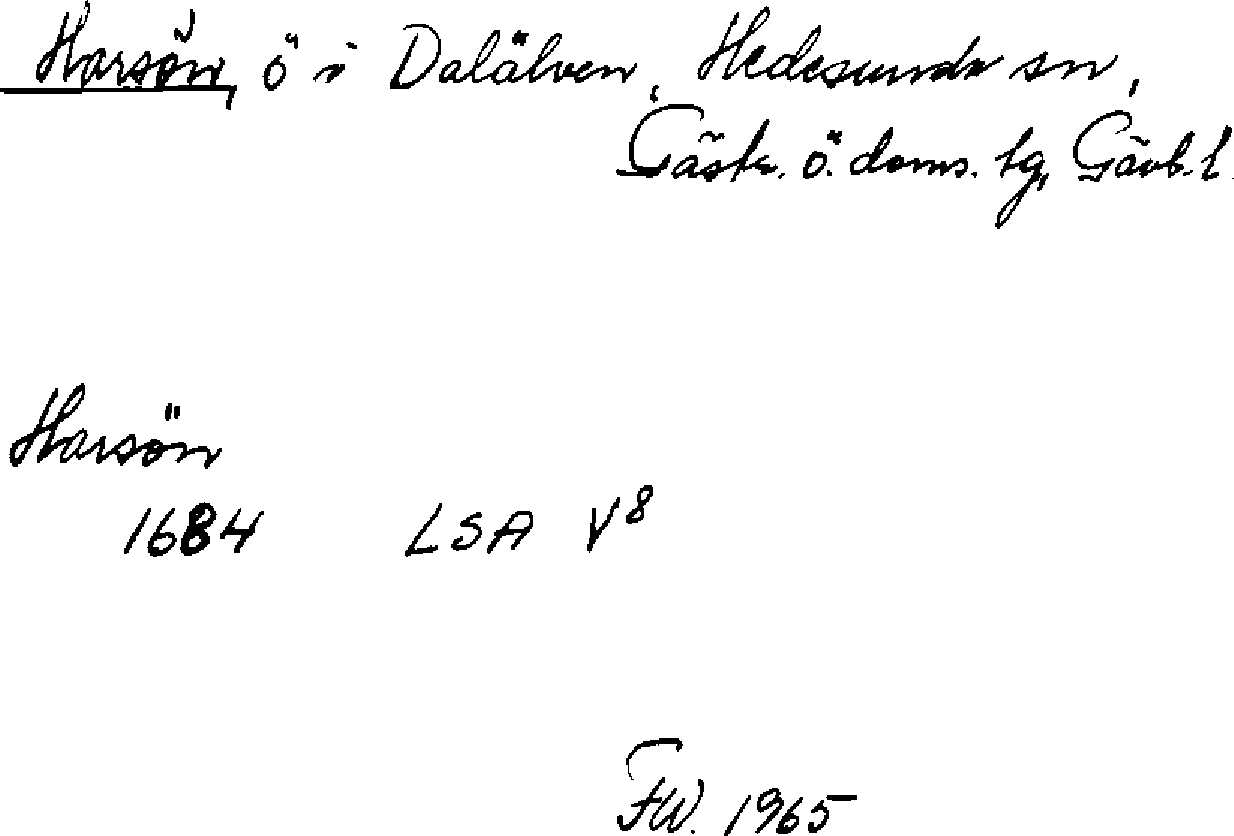 Harsön, ö i Dalälven, Hedesunda sn,
Gästr. ö. doms. tg, Gävb. l.
Harsön
1684 LSA V8
FW. 1965